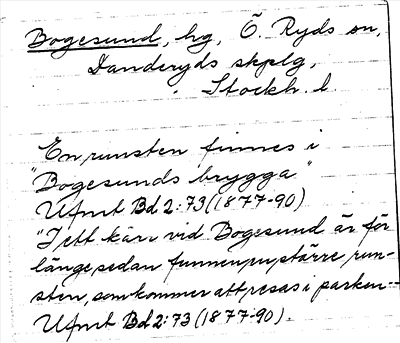 Bogesund, hg, Ö. Ryds sn,
Danderyds skplg,
Stockh. l.
En runsten finnes i
"Bogesunds brygga"
Ufmt Bd 2:73 (1877-90)
"I ett kärr vid Bogesund är för
länge sedan funnen en större run-
sten, som kommer att resas i parken--
Ufmt Bd 2:73 (1877-90).